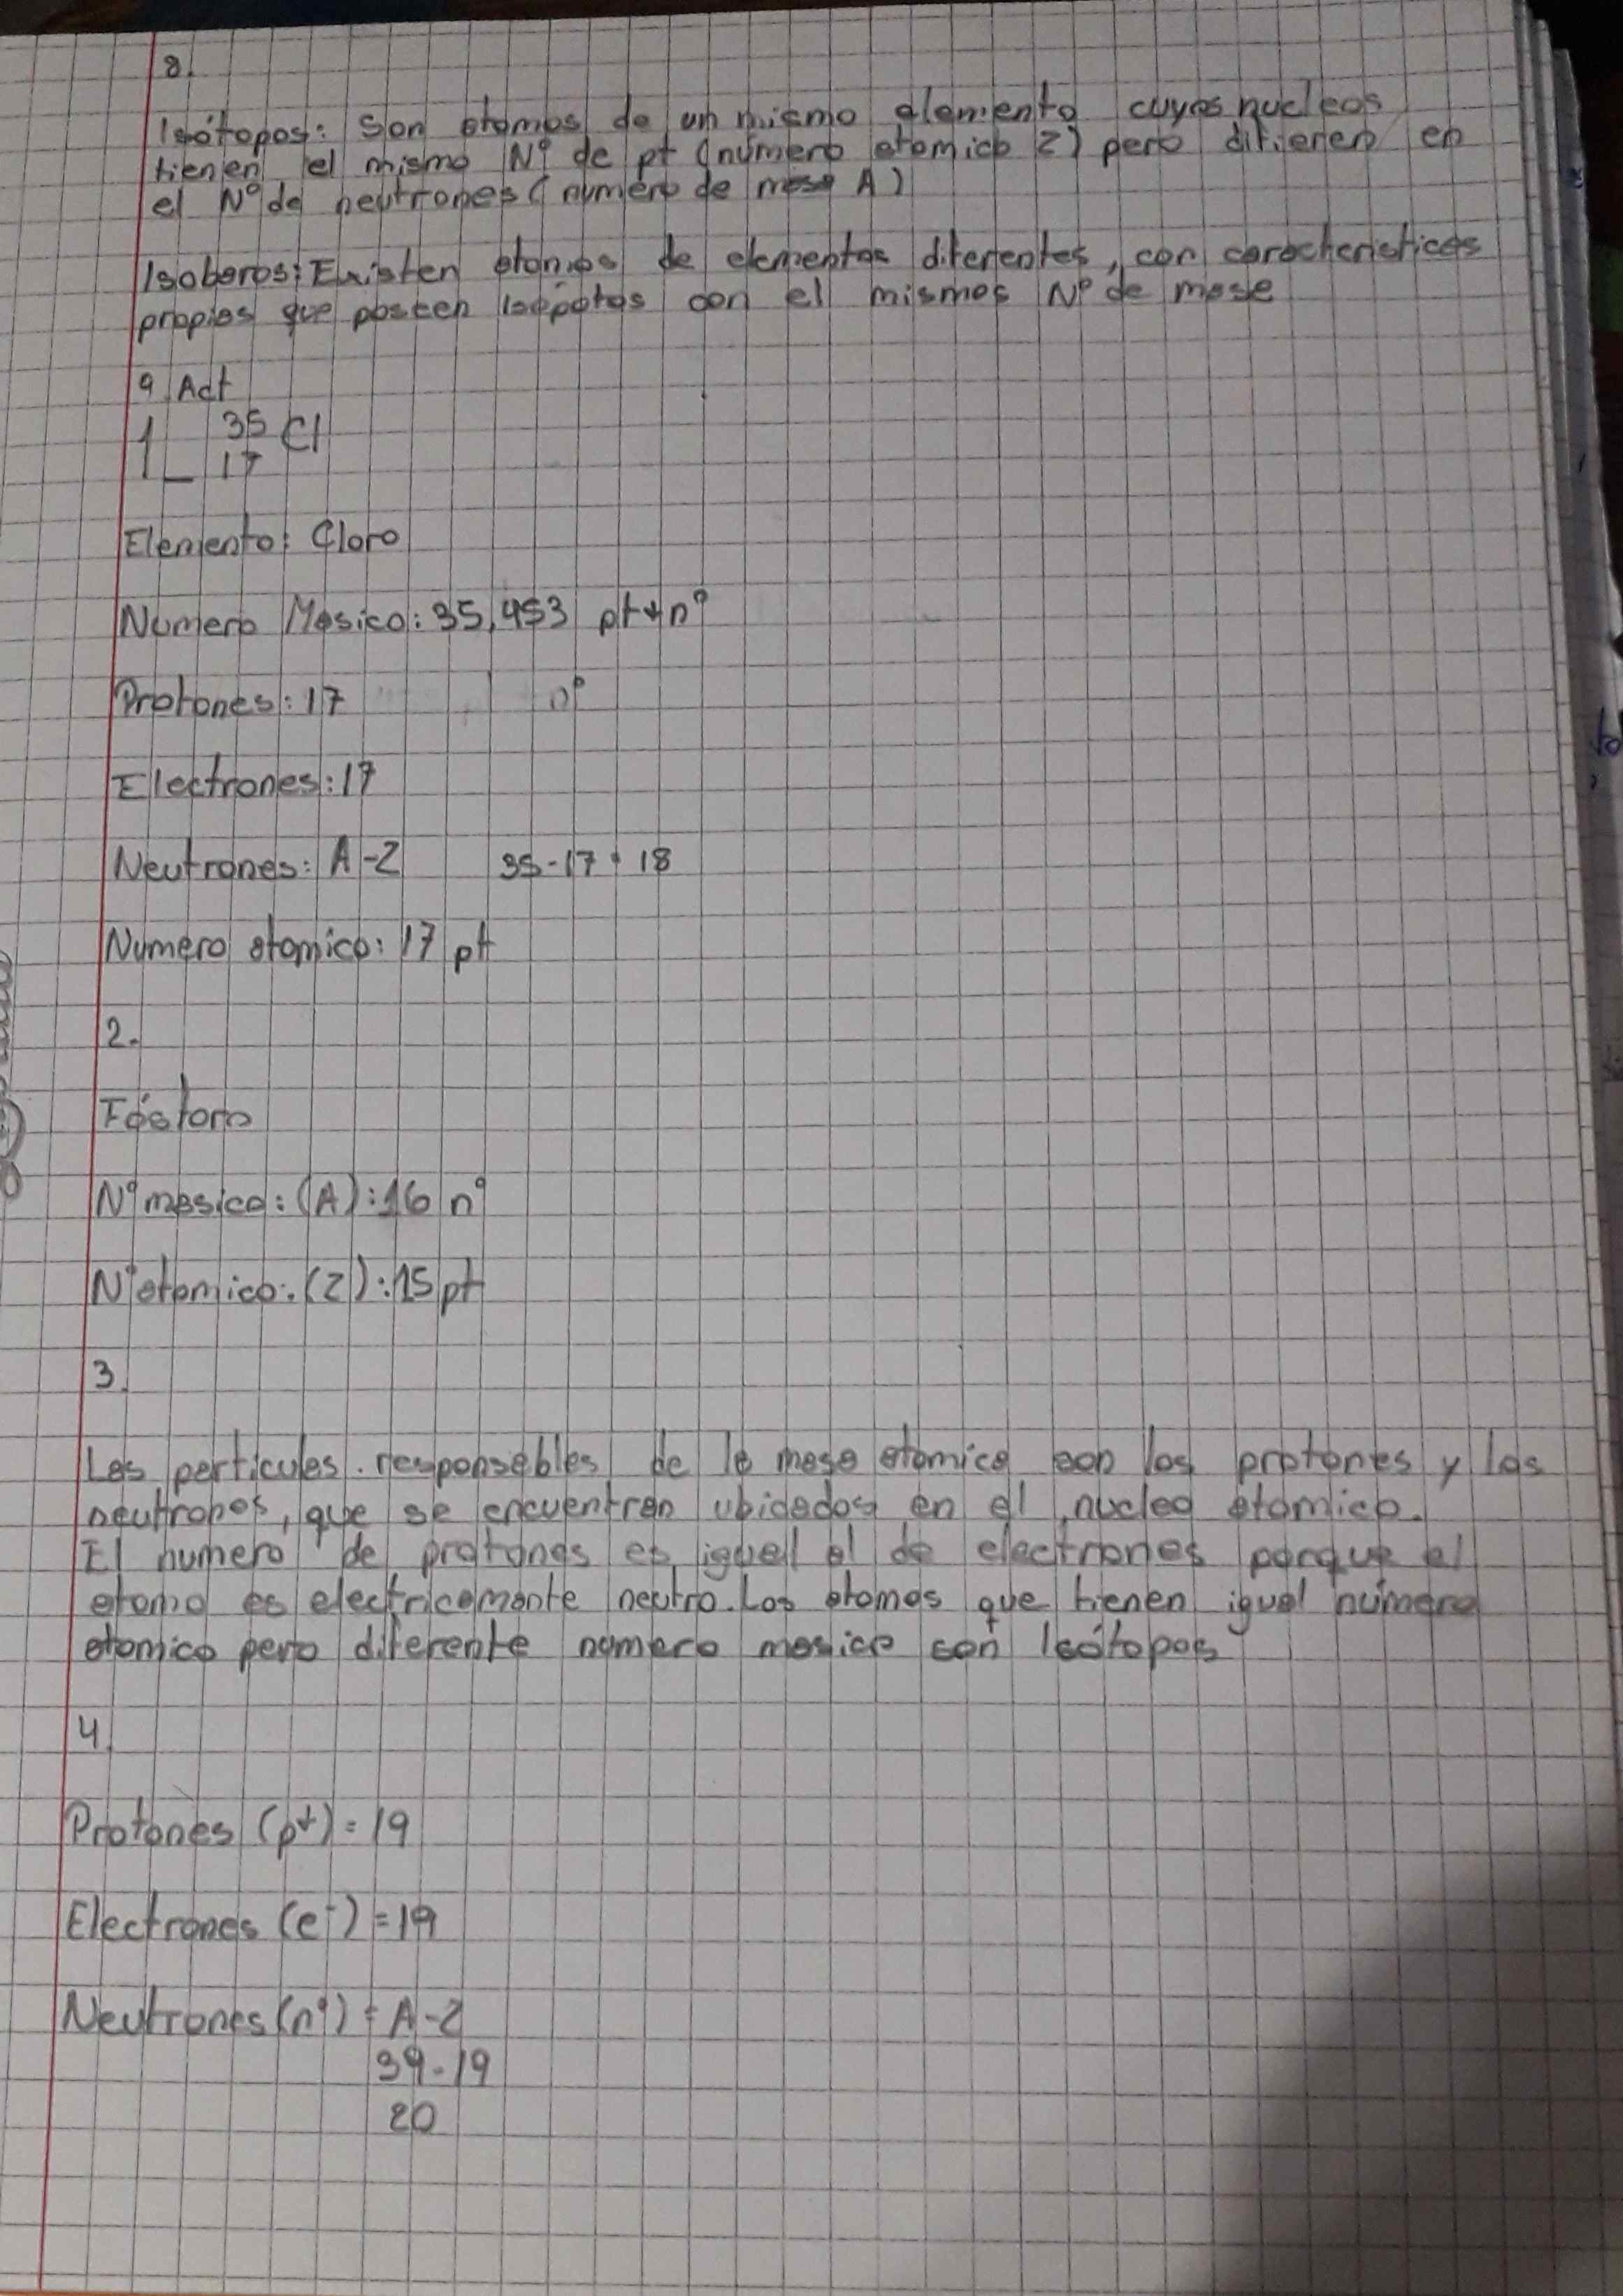 8.
Isótopos: Son atomos de un mismo elemento cuyos nucleos
tienen el mismo N° de p+ (número atomico Z) pero difieren en
el N° de neutrones (numero de masa A)
Isobaros: Existen atomos de elementos diferentes, con carachteristicas
propias que posten Isópotos con el mismos N° de masa
9 Act
1_ 35 Cl
17
Elemento: Cloro
Numero Masico: 35,453 p+ + n°
Protones: 17 n°
Electrones: 17
Neutrones: A-Z 35-17 = 18
Numero atomico: 17 p+
2.
Fósforo
N° masico: (A): 16 n°
N° atomico: (Z): 15 p+
3.
Las particulas responsables de la masa atomica son los protones y los
neutrones, que se encuentran ubicados en el nucleo atomico.
El numero de protones es igual al de electrones porque el
atomo es electricamente neutro. Los atomos que tienen igual número
atomico pero diferente numero masico son Isótopos
4
Protones (p+) = 19
Electrones (e-) = 19
Neutrones (n°) = A-Z
39-19
20